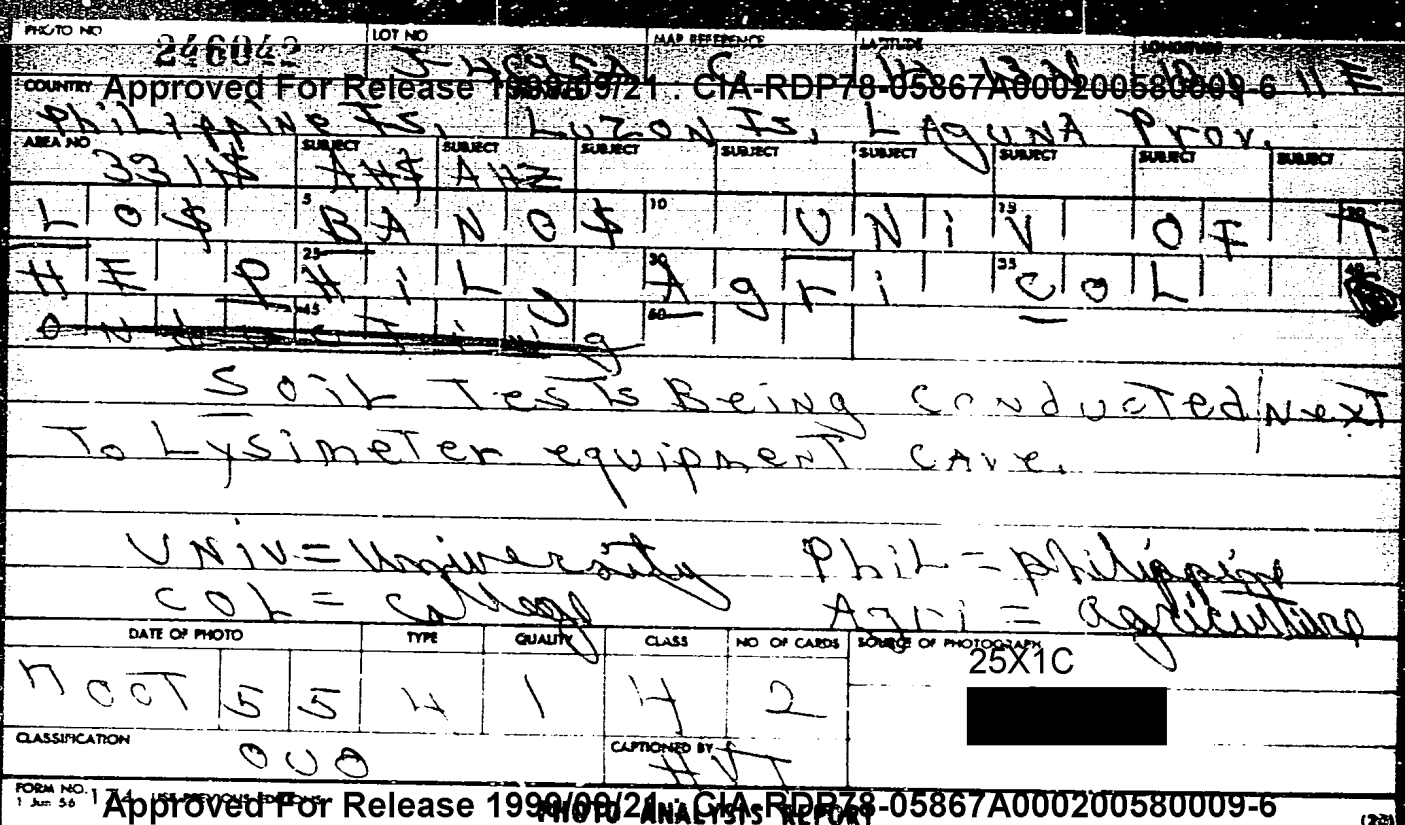 PHOTO NO LOT NO MAP REFERENCE LATITUDE LONGITUDE
246042
COUNTRY Approved For Release 1999/09/21 : CIA-RDP78-05867A000200580009-6 11 E
Philippine Is, Luzon Is, LAgUNA Prov.
AREA NO SUBJECT SUBJECT SUBJECT SUBJECT SUBJECT SUBJECT SUBJECT SUBJECT
LO$ 5 BANO$ 10 UNiV 15 OF T
HE PHiL 25 30 Agri 35 COL 40
45 50
Soil Tests Being Conducted Next
To Lysimeter equipment CAve.
UNiv = University PhiL = philippine
COL = College Agri = agriculture
DATE OF PHOTO TYPE QUALITY CLASS NO OF CARDS SOURCE OF PHOTOGRAPH
25X1C
OCT 55 4 1 4 2
CLASSIFICATION OUO CAPTIONED BY HVT
FORM NO. 174 USE PREVIOUS EDITIONS
1 Jun 56 Approved For Release 1999/09/21 : CIA-RDP78-05867A000200580009-6
PHOTO ANALYSIS REPORT